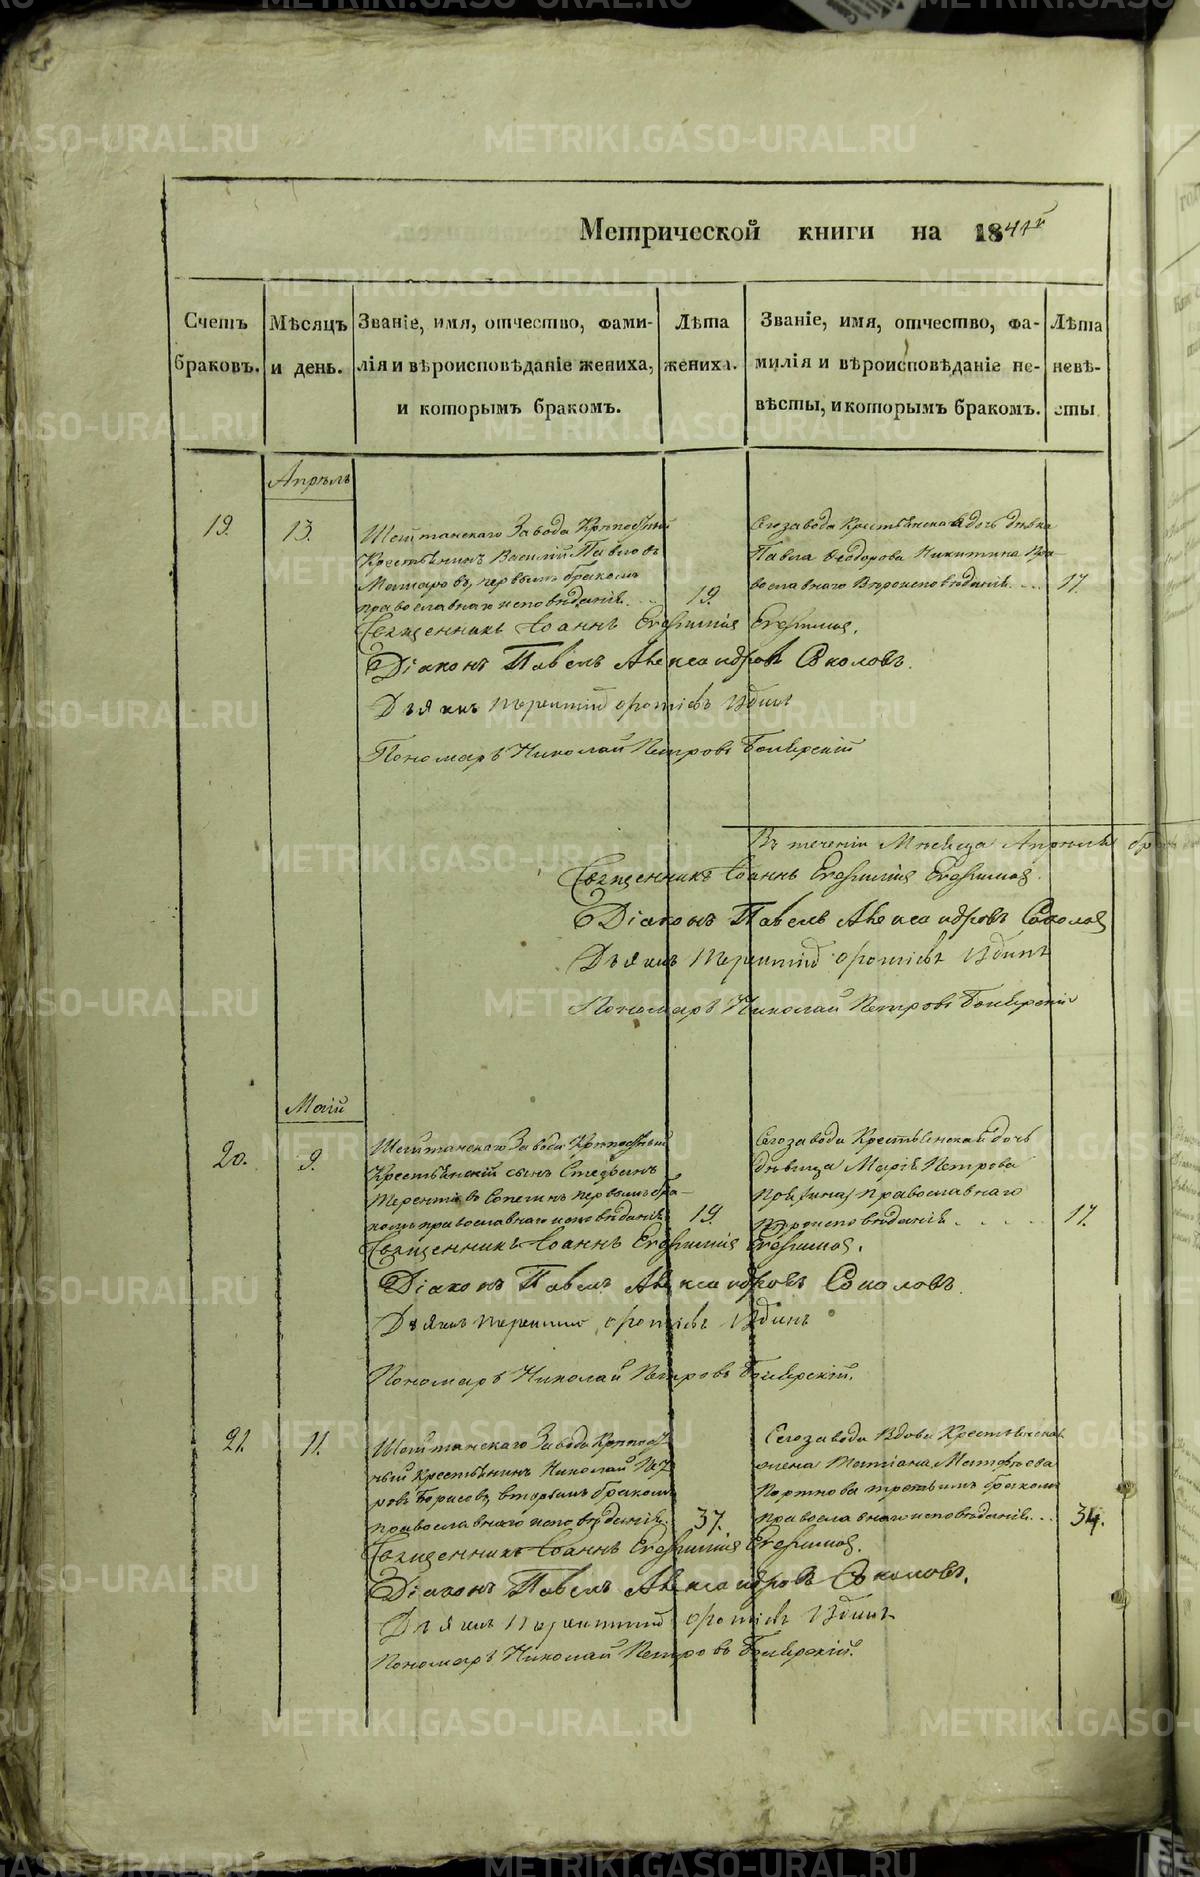 Метрической книги на 1841й
Счетъ браковъ.
Мѣсяцъ и день.
Званіе, имя, отчество, фами-
лія и вѣроисповѣданіе жениха,
и которымъ бракомъ.
Лѣта жениха.
Званіе, имя, отчество, фа-
милія и вѣроисповѣданіе не-
вѣсты, и которымъ бракомъ.
Лѣта невѣ-
сты
Апрѣль
19.
13.
Шайтанскаго Завода Крѣпостный
Крестьянинъ Василій Павловъ
первымъ бракомъ
православнаго исповѣданія.
19.
Сегозавода Крестьянская дочь дѣвка
Павла Ѳеодорова Никитина Пра-
вославнаго Вѣроисповѣданія....
17.
Священникъ Іоаннъ
Діаконъ Павелъ Александровъ Соколовъ.
Дьячекъ
Пономарь Николай Петровъ Боярскій
Въ теченіи Мѣсяца Апрѣля
Священникъ Іоаннъ
Діаконъ Павелъ Александровъ Соколов
Дьячекъ
Пономарь Николай Петровъ Боярскій
Маій
20.
9.
Шайтанскаго Завода Крѣпостный
Крестьянскій сынъ Стефанъ
Терентіевъ первымъ бра-
комъ православнаго исповѣданія
19.
Сегозавода Крестьянская дочь
дѣвица Марія Петрова
православнаго
вѣроисповѣданія.....
17.
Священникъ Іоаннъ
Діаконъ Павелъ Александровъ Соколовъ.
Дьячекъ
Пономарь Николай Петровъ Боярскій.
21.
11.
Шайтанскаго Завода Крѣпост-
ный Крестьянинъ Николай Пет-
ровъ Борисовъ, вторымъ бракомъ
православнаго исповѣданія.
37.
Сегозавода Вдова Крестьянская
жена Татіана Матфѣева
Портнова третьимъ бракомъ
православнаго исповѣданія...
34.
Священникъ Іоаннъ
Діаконъ Павелъ Александровъ Соколовъ.
Дьячекъ
Пономарь Николай Петровъ Боярскій.
METRIKI.GASO-URAL.RU